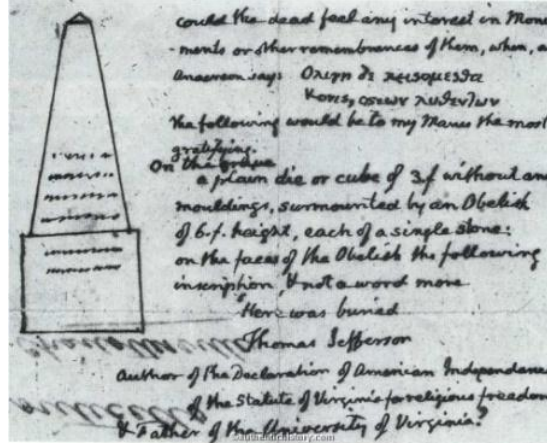 could the dead feel any interest in Monu
-ments or other remembrances of them, when, as
Anacreon says Ολιγη δε κεισομεσθα
Κονις, οστεων λυθεντων
the following would be to my Manes the most
gratifying.
On the grave
a plain die or cube of 3.f without any
mouldings, surmounted by an Obelisk
of 6.f. height, each of a single stone:
on the faces of the Obelisk the following
inscription, & not a word more
"Here was buried
Thomas Jefferson
Author of the Declaration of American Independance
of the Statute of Virginia for religious freedom
& Father of the University of Virginia."
©authentichistory.com